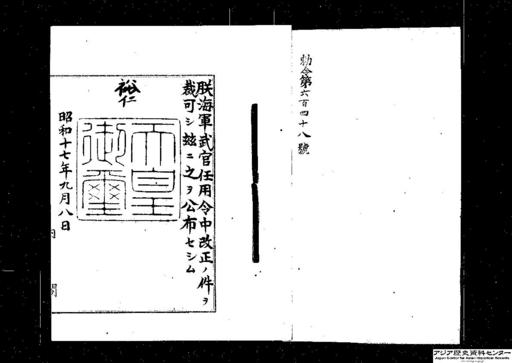 勅令第六百四十八號
朕海軍武官任用令中改正ノ件ヲ
裁可シ玆ニ之ヲ公布セシム
裕仁
天皇
御璽
昭和十七年九月八日
内閣
アジア歴史資料センター
Japan Center for Asian Historical Records